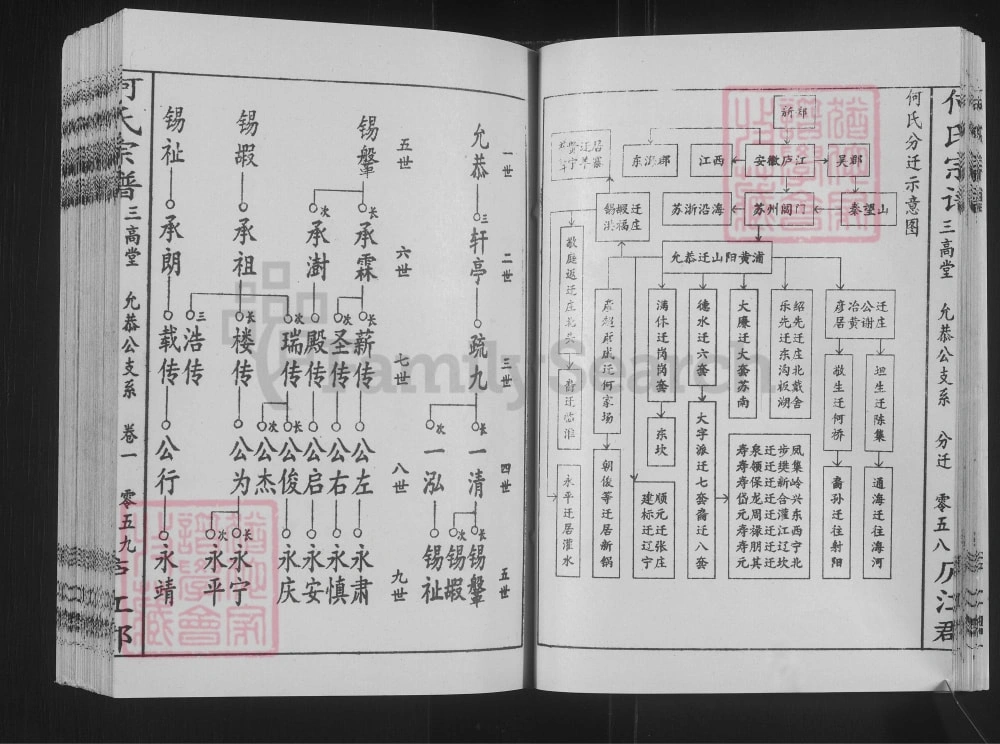 何氏宗谱 三高堂 允恭公支系 分迁 零五八 庐江郡
何氏分迁示意图
新郑
东海郡
江西
安徽庐江
吴郡
秦望山
苏州阊门
苏浙沿海
锡嘏迁洪福庄
允恭迁山阳黄浦
彦冶公迁居黄谢庄
坦生迁陈集
通海迁往海河
敬生迁何桥
裔孙迁往射阳
绍先迁庄北戴舍
乐先迁东沟板湖
大廉迁大套苏南
寿泉迁步凤
寿领迁樊集
寿保迁新岭
岱龙迁合兴
元周迁灌东
寿禄迁江西
寿朋迁辽宁
元其迁坎北
德水迁六套
大字派迁七套裔迁八套
满休迁岗套
东坎
顺元迁张庄
建标迁辽宁
朝俊等迁居新锅
敬庭返迁庄北头
裔迁临淮
永平迁居灌水
何氏宗谱 三高堂 允恭公支系 卷一 零五九 庐江郡
一世 二世 三世 四世 五世
允恭 三 轩亭 疏九
长 一清
次 一泓
长 锡鞶
次 锡嘏
锡祉
五世 六世 七世 八世 九世
锡鞶
长 承霖
次 承澍
长 薪传 公左 永肃
次 圣传 公右 永慎
殿传 公启 永安
次 瑞传
长 公俊 永庆
次 公杰
三 浩传
锡嘏 承祖
长 楼传 公为
长 永宁
次 永平
锡祉 承朗 载传 公行 永靖
FamilySearch